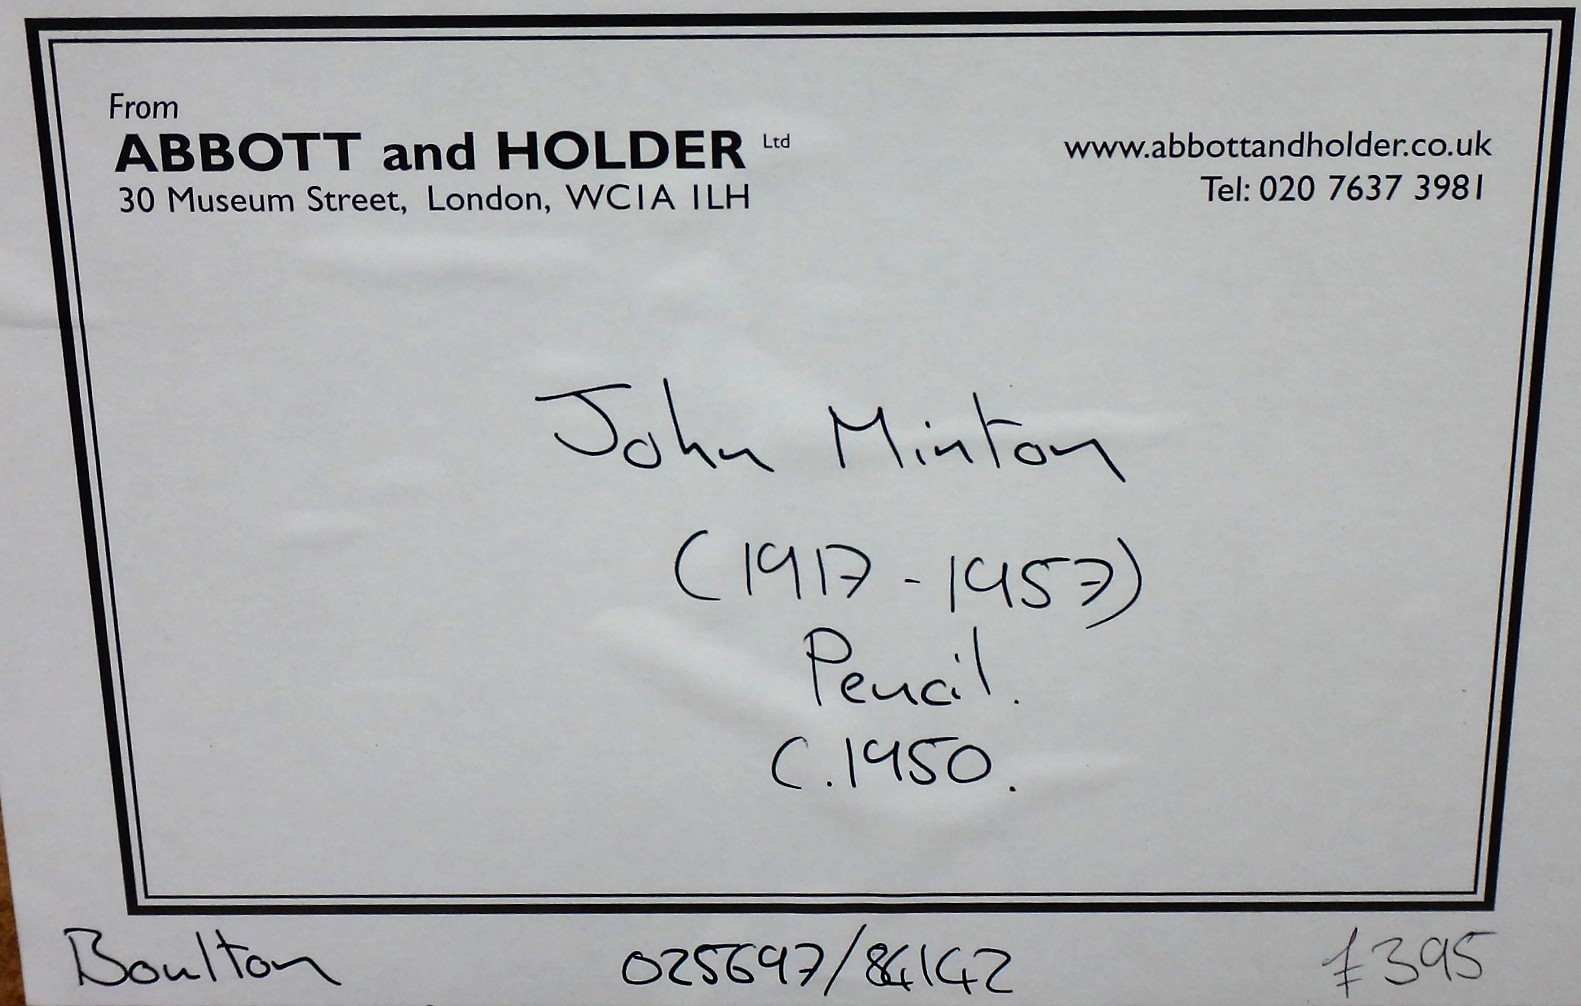 From
ABBOTT and HOLDER Ltd
30 Museum Street, London, WC1A 1LH
www.abbottandholder.co.uk
Tel: 020 7637 3981
John Minton
(1917 - 1957)
Pencil.
C.1950.
Boulton 025697/84142 £395